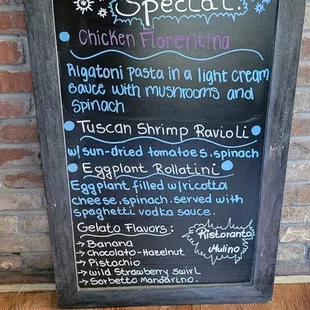 Special:
Chicken Florentina
Rigatoni pasta in a light cream
sauce with mushrooms and
spinach
Tuscan Shrimp Ravioli
w/sun-dried tomatoes.spinach
Eggplant Rollatini
Eggplant filled w/ricotta
cheese.spinach.served with
spaghetti vodka sauce.
Gelato Flavors:
→Banana
→Chocolato-Hazelnut
→Pistachio
→Wild Strawberry Swirl
→Sorbetto Mandarino.
Ristorante
Mulino